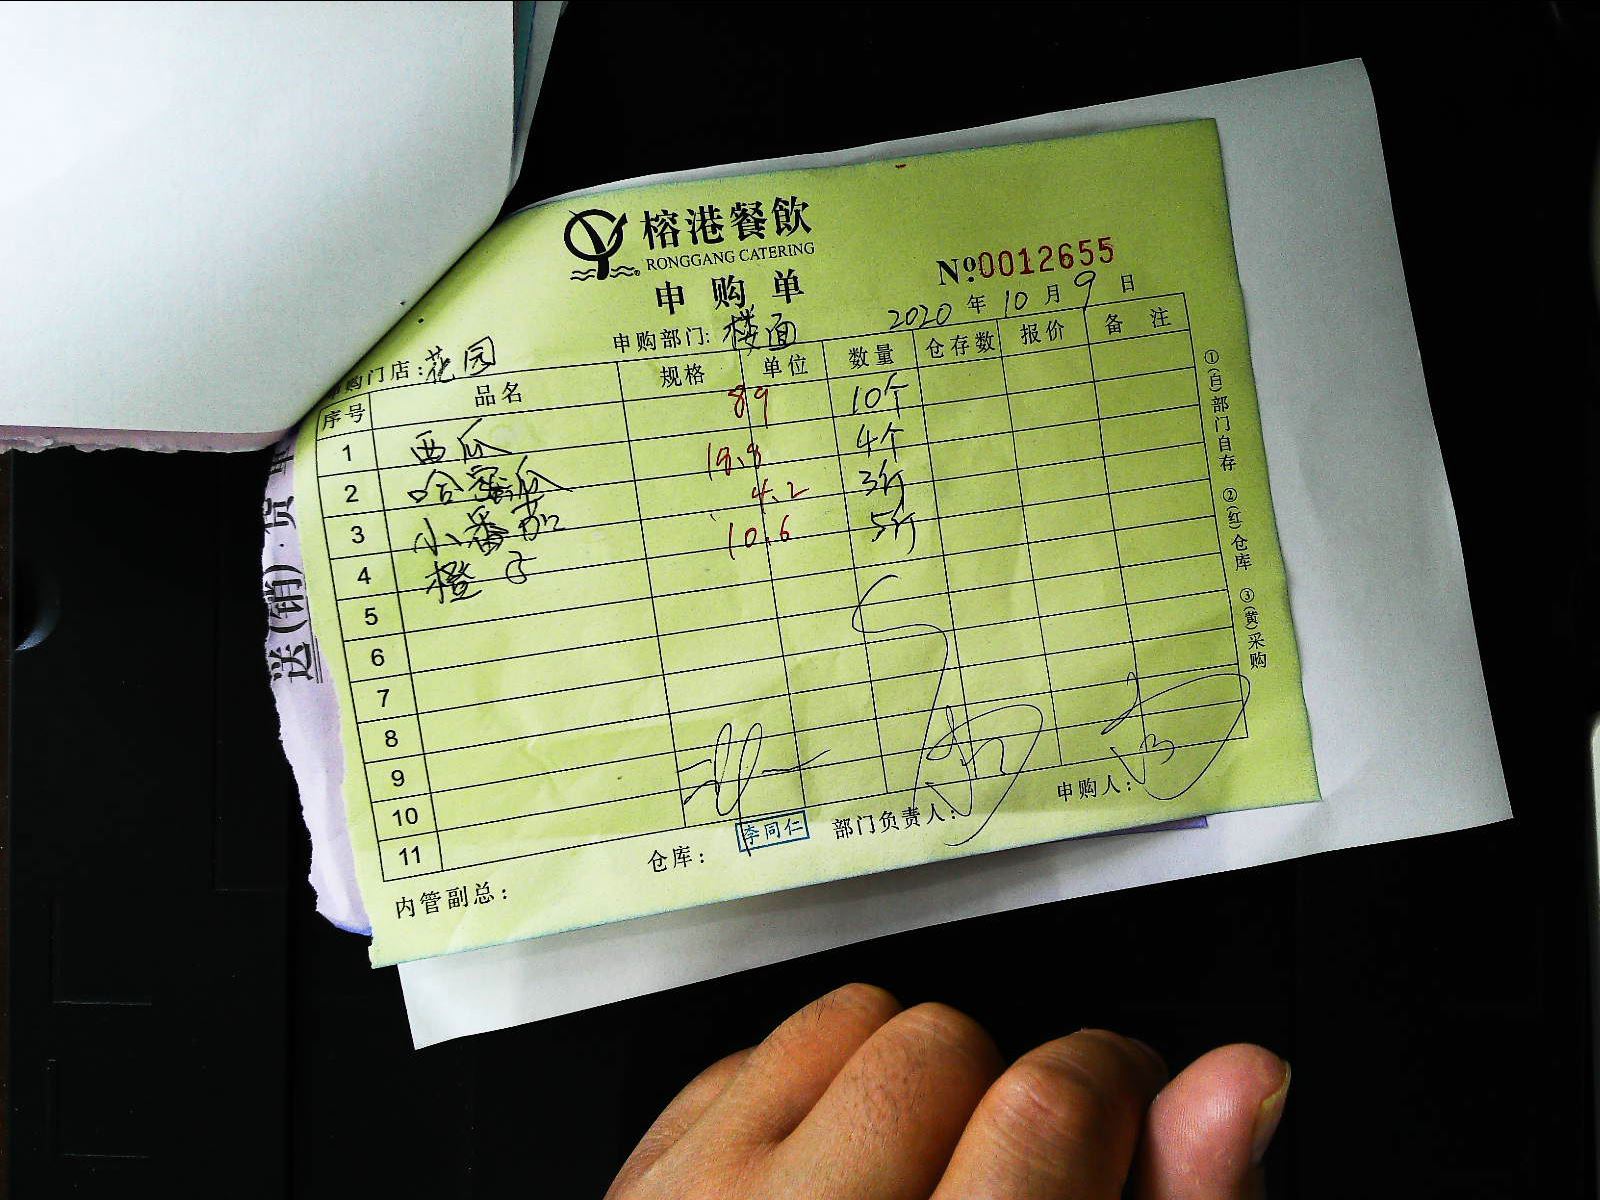 榕港餐飲
RONGGANG CATERING
申购单
No.0012655
2020 年 10 月 9 日
购门店:花园 申购部门:楼面
序号 品名 规格 单位 数量 仓存数 报价 备注
1 西瓜 89 10个
2 哈蜜瓜 18.8 4个
3 小番茄 4.2 3斤
4 橙子 10.6 5斤
5
6
7
8
9
10
11
内管副总: 仓库: 李同仁 部门负责人: 申购人:
①(白)部门自存 ②(红)仓库 ③(黄)采购
送(销)·货单